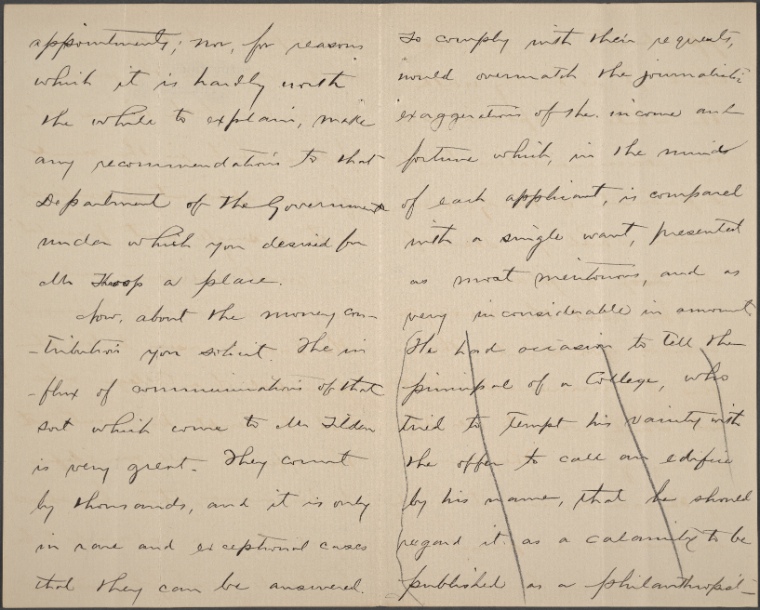 appointments; nor, for reasons
which it is hardly worth
the while to explain, make
any recommendations to that
Department of the Government
under which you desired for
Mr Throop a place.
Now, about the money con-
-tributions you solicit. The in
-flux of communications of that
sort which come to Mr Tilden
is very great. They count
by thousands, and it is only
in rare and exceptional cases
that they can be answered.
To comply with their requests,
would overmatch the journalistic
exaggerations of the income and
fortune which, in the mind
of each applicant, is compared
with a single want, presented
as most meritorious, and as
very inconsiderable in amount
He had occasion to tell the
principal of a College, who
tried to tempt his vanity with
the offer to call an edifice
by his name, that he should
regard it as a calamity to be
published as a philanthropist